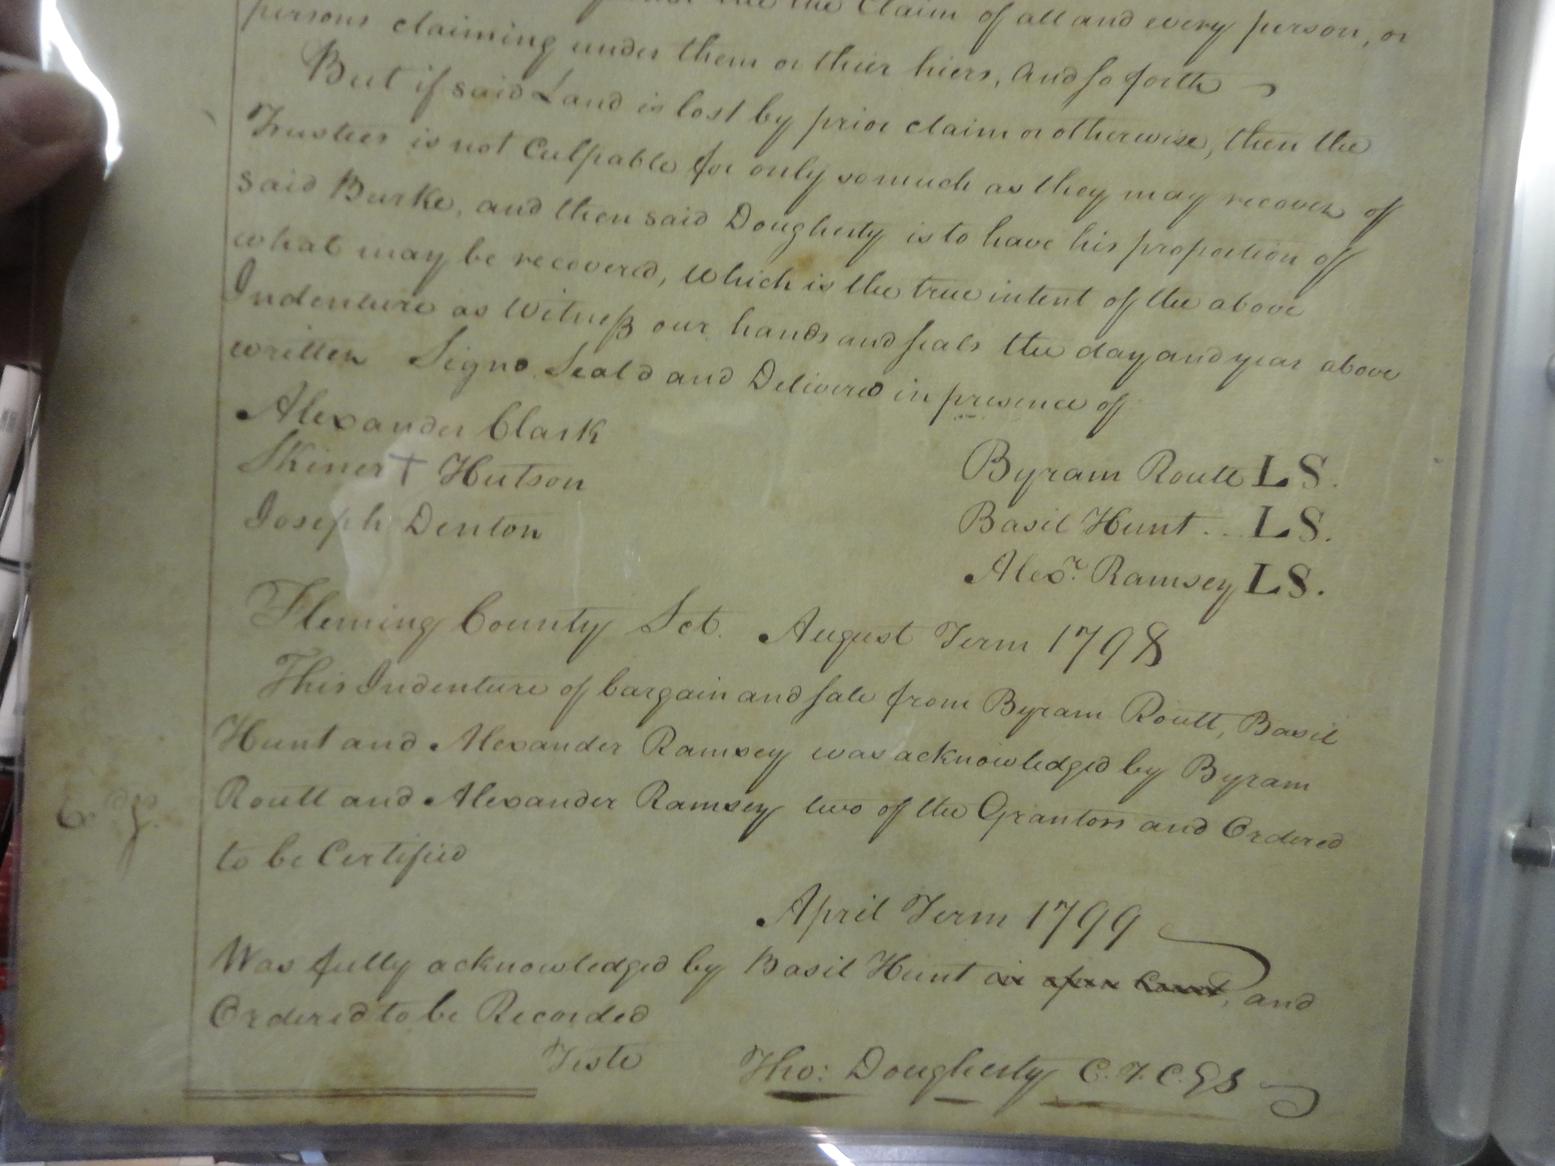 the Claim of all and every person, or
persons claiming under them or thier hiers, and so forth
But if said Land is lost by prior claim or otherwise, then the
Trustees is not Culpable for only so much as they may recover of
said Burke, and then said Dougherty is to have his proportion of
what may be recovered, which is the true intent of the above
Indenture as Witness our hands and seals the day and year above
written Signd Seald and Delivered in presence of
Alexander Clark
Skiner + Hutson
Joseph Denton
Byram Routt LS.
Basil Hunt .. LS.
Alexr. Ramsey LS.
Fleming County Sct. August Term 1798
This Indenture of bargain and sale from Byram Routt, Basil
Hunt and Alexander Ramsey was acknowledged by Byram
Routt and Alexander Ramsey two of the Grantors and Ordered
to be Certified
April Term 1799
Was fully acknowledged by Basil Hunt in open Court, and
Ordered to be Recorded
Teste Tho: Dougherty C.F.C.